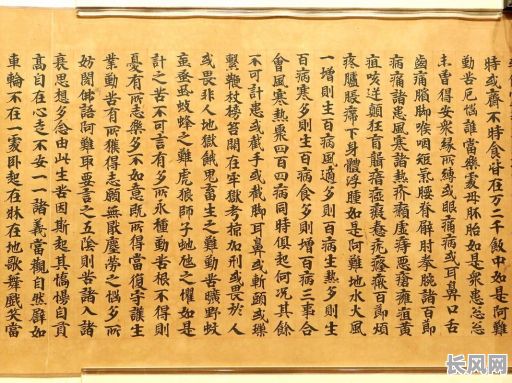 時或齋不時食皆在万二千飯中如是阿難
動苦厄惱誰當樂處毋胚胎如是衆患忩忩
未曽得安衆緣所縛或眼痛病或耳鼻口舌
齒痛臏脚喉咽短氣腰脊臂肘拳腕諸百節
病痛諸患風寒諸熱疥癩虛痔惡瘡癰疽黄
疸咳逆顛狂盲聾瘖瘂癡疣痤百節煩
疼臚脹滯下身體浮腫如是阿難地水火風
一增則生百病風適多則生百病熱多則生
百病寒多則生百病食多則增百病三事合
會風寒熱聚四百四病同時俱起何況其餘
不可計患或截手或截脚耳鼻或斬頭或
繫鞭杖榜笞閉在牢獄考掠加刑或畏於人
或畏非人地獄餓鬼畜生之難動苦曠野蚊
䖟蚤虱蜂之難虎狼師子虵虺之懼如是
計之苦不可言有多所永種動苦根不得則
憂有所志樂多不如意既所得當復守護生
業動苦有所獲得志願無厭塵勞之惱多所
妨閡佛語阿難取要言之五陰則苦諸入諸
衰思想多念由此生苦因斯起其憍慢自貢
高自在心走不安一一諸義當觀自然譬如
車輪不在一處卧起在牀在地歌舞戲笑當
长风网